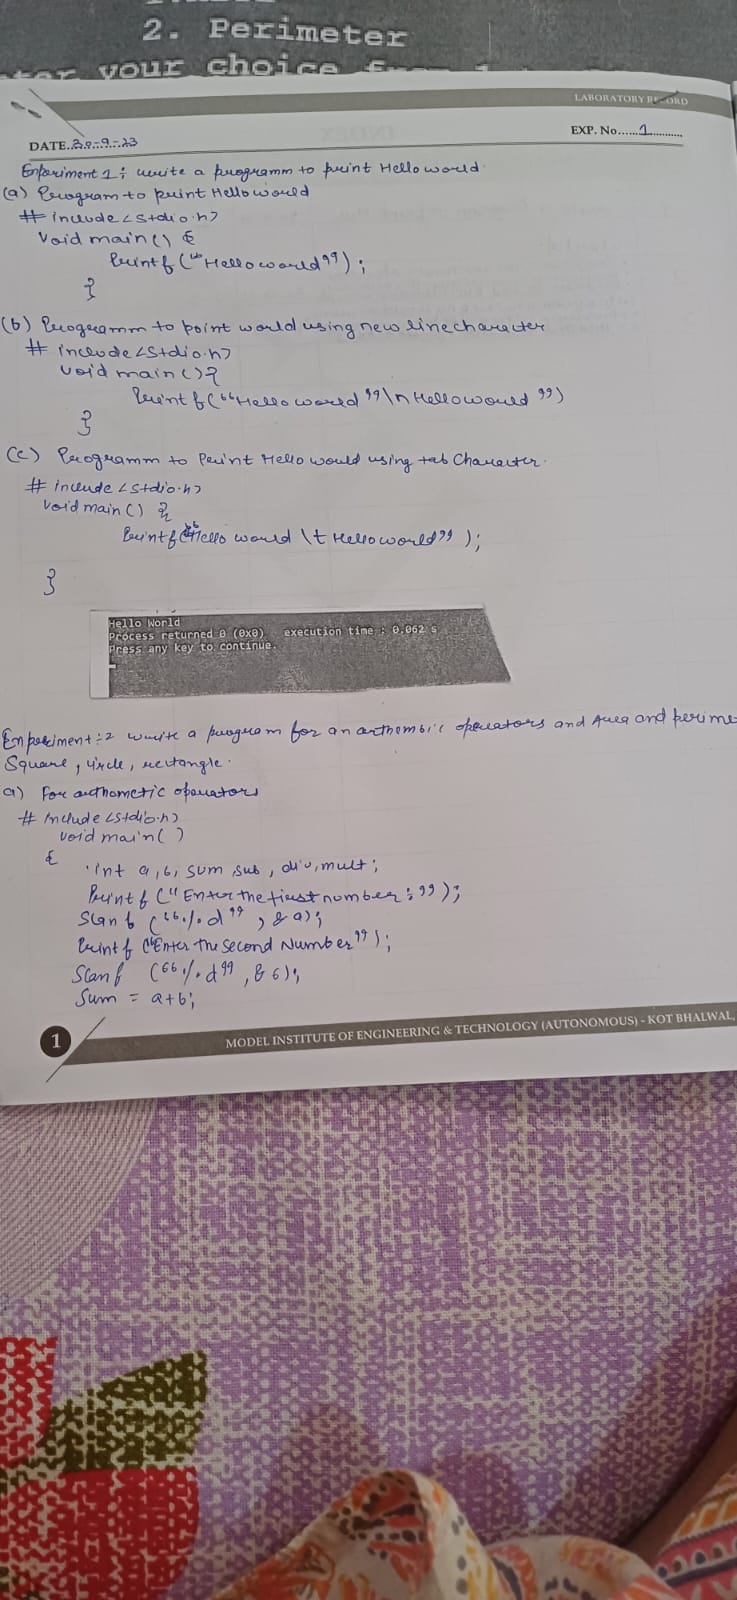 2. Perimeter
your choice from 1
LABORATORY RECORD
DATE..30-9-23
EXP. No......1...........
Experiment 1: write a programm to print Hello world
(a) Program to print Hello world
# include <stdio.h>
void main() {
printf ("Hello world");
}
(b) Programm to point world using new line character
# include <stdio.h>
void main() {
printf ("Hello world "\n Hello world ")
}
(c) Programm to Print Hello world using tab Character.
# include <stdio.h>
void main() {
printf ("Hello world \t Hello world" );
}
Hello World
Process returned 0 (0x0)   execution time : 0.062 s
Press any key to continue.
Experiment :- 2 write a program for an arthembic operators and Area and perime
Square, circle, rectangle.
a) For arthometic operators
# Include <stdio.h>
void main( )
{
int a, b, sum, sub, div, mult;
Printf ("Enter the first number : ");
Scanf ("%d", &a);
Printf ("Enter the Second Number");
Scanf ("%d", &b);
Sum = a+b;
1
MODEL INSTITUTE OF ENGINEERING & TECHNOLOGY (AUTONOMOUS) - KOT BHALWAL,